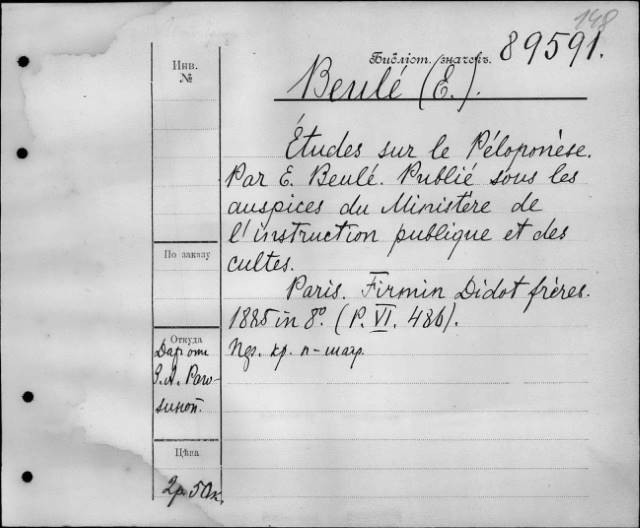 148
Библіот. значекъ. 89591.
Инв.
№
Beulé (E.).
Études sur le Péloponèse.
Par E. Beulé. Publié sous les
auspices du Ministère de
l'instruction publique et des
cultes.
По заказу
Paris. Firmin Didot frères.
1885 in 8º. (P. VI. 486).
Откуда
Даръ отъ
Цѣна
2р. 50к.